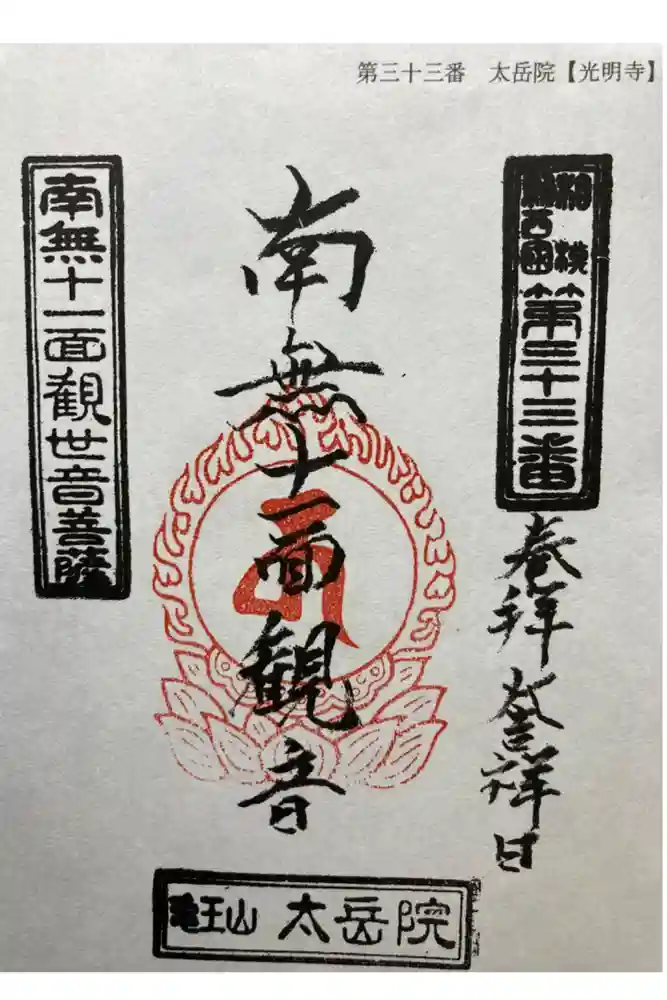 第三十三番　太岳院【光明寺】
相模
新西國
第三十三番
奉拝
吉祥日
南無十一面観音
南無十一面観世音菩薩
亀王山 太岳院